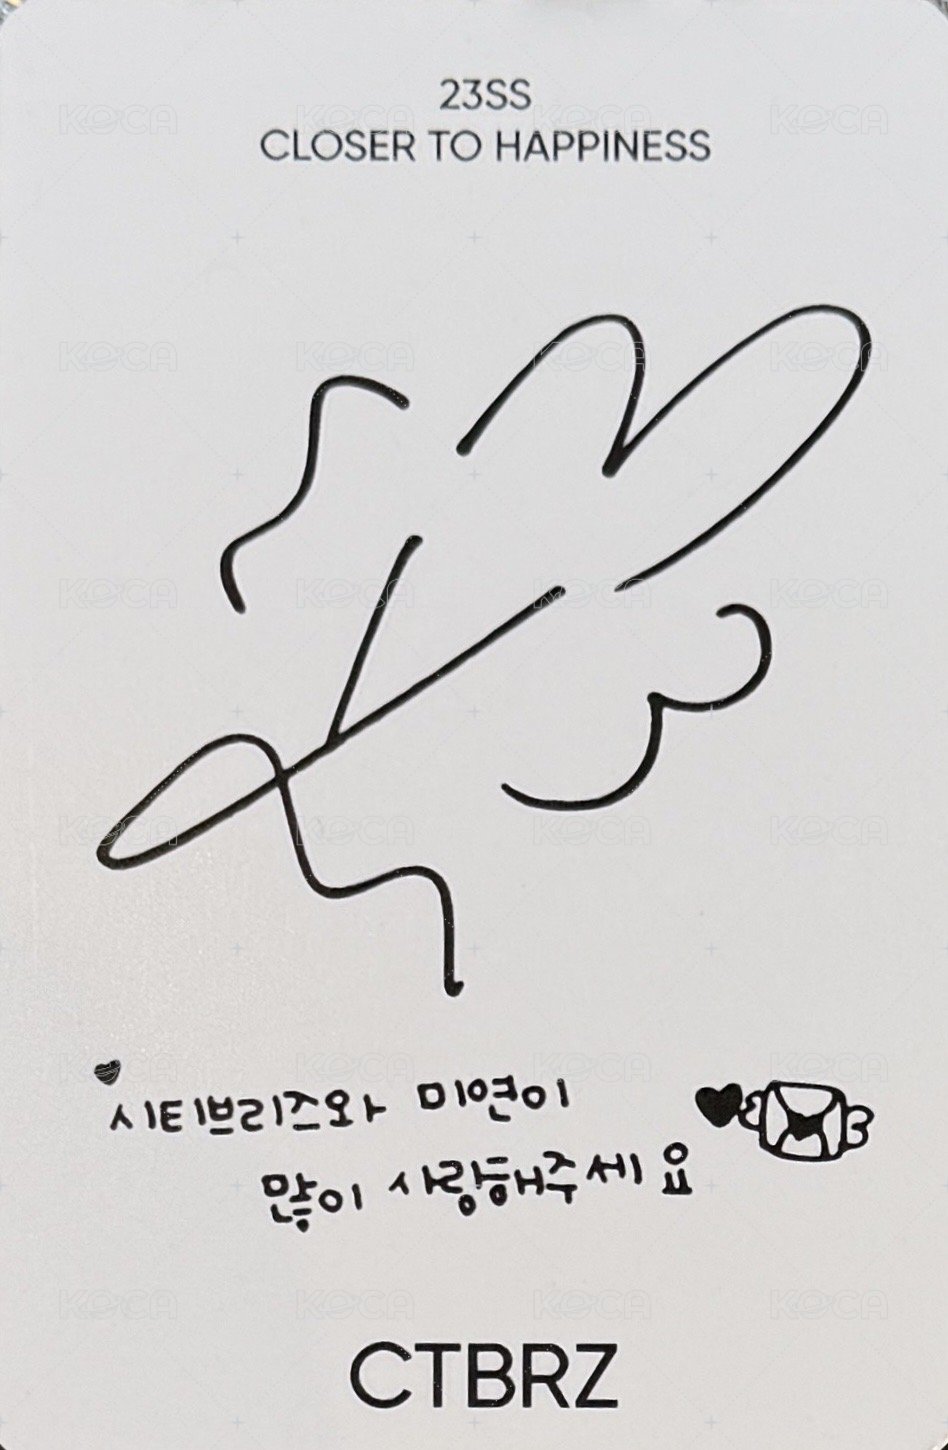 23SS
CLOSER TO HAPPINESS
시티브리즈와 미연이
많이 사랑해주세요
CTBRZ
KOCA